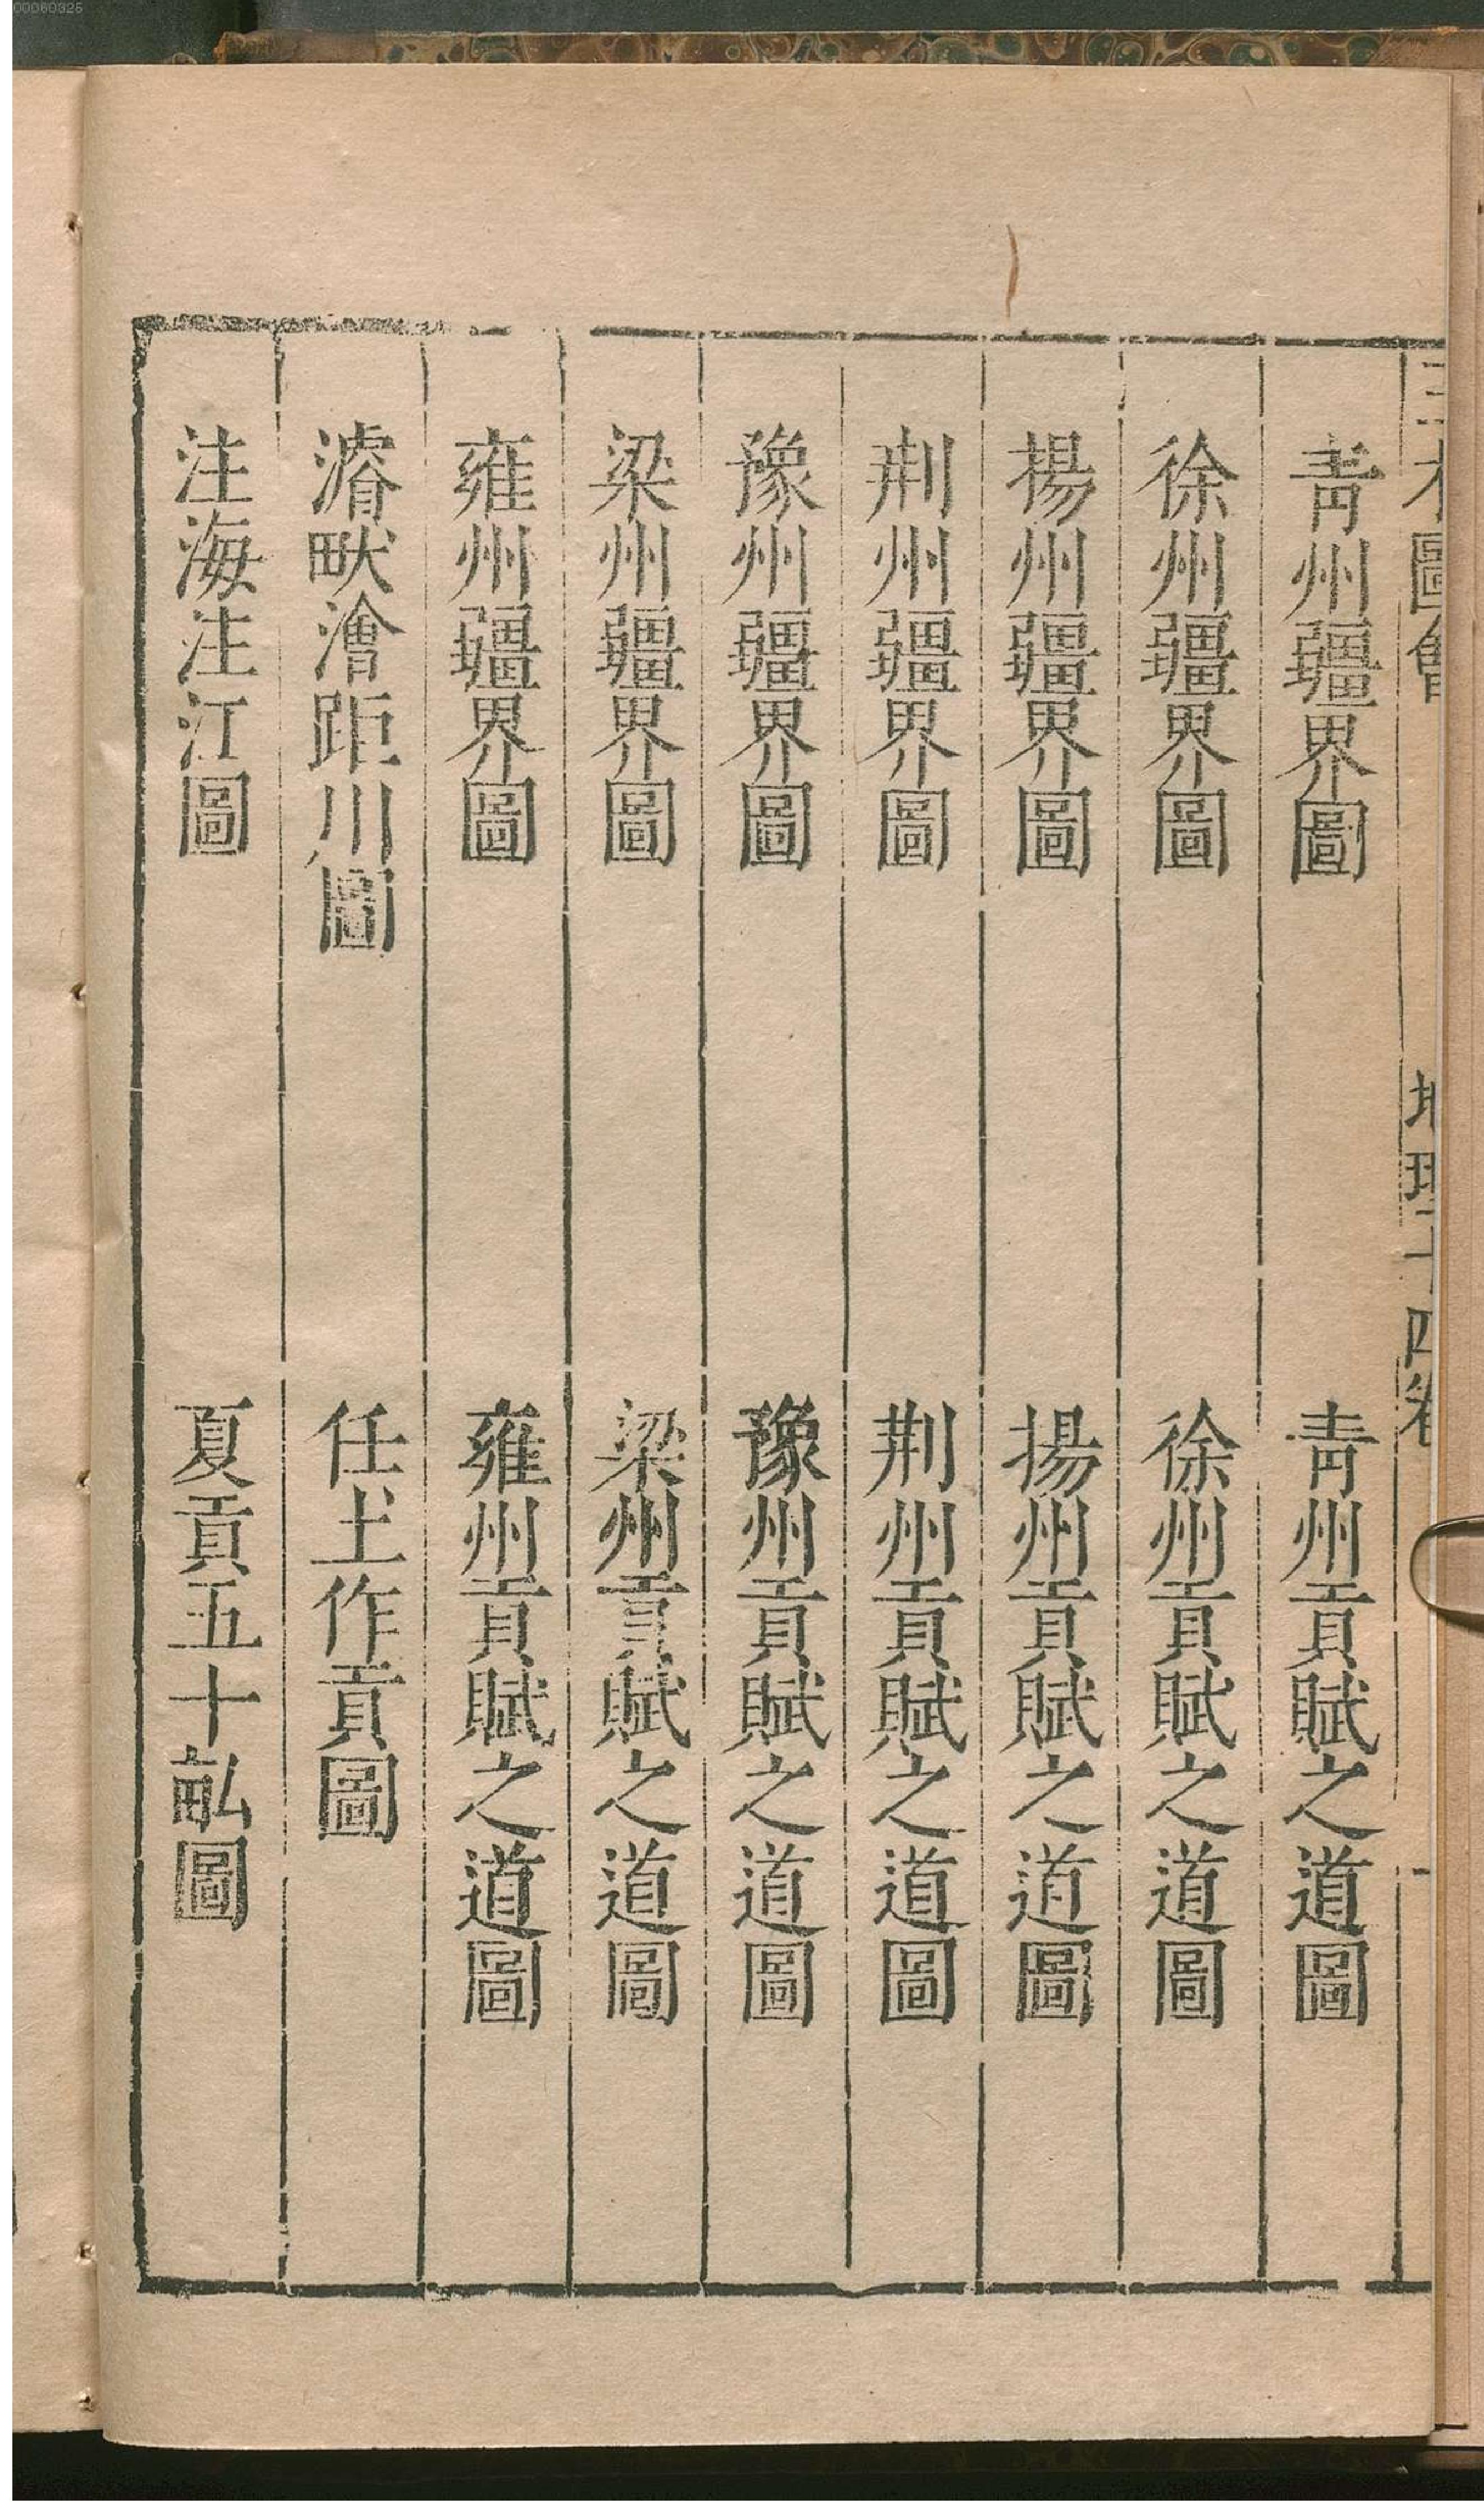 00060325
三才圖會 地理十四卷 一
青州疆界圖 青州貢賦之道圖
徐州疆界圖 徐州貢賦之道圖
揚州疆界圖 揚州貢賦之道圖
荆州疆界圖 荆州貢賦之道圖
豫州疆界圖 豫州貢賦之道圖
梁州疆界圖 梁州貢賦之道圖
雍州疆界圖 雍州貢賦之道圖
濬畎澮距川圖 任土作貢圖
注海注江圖 夏貢五十畝圖